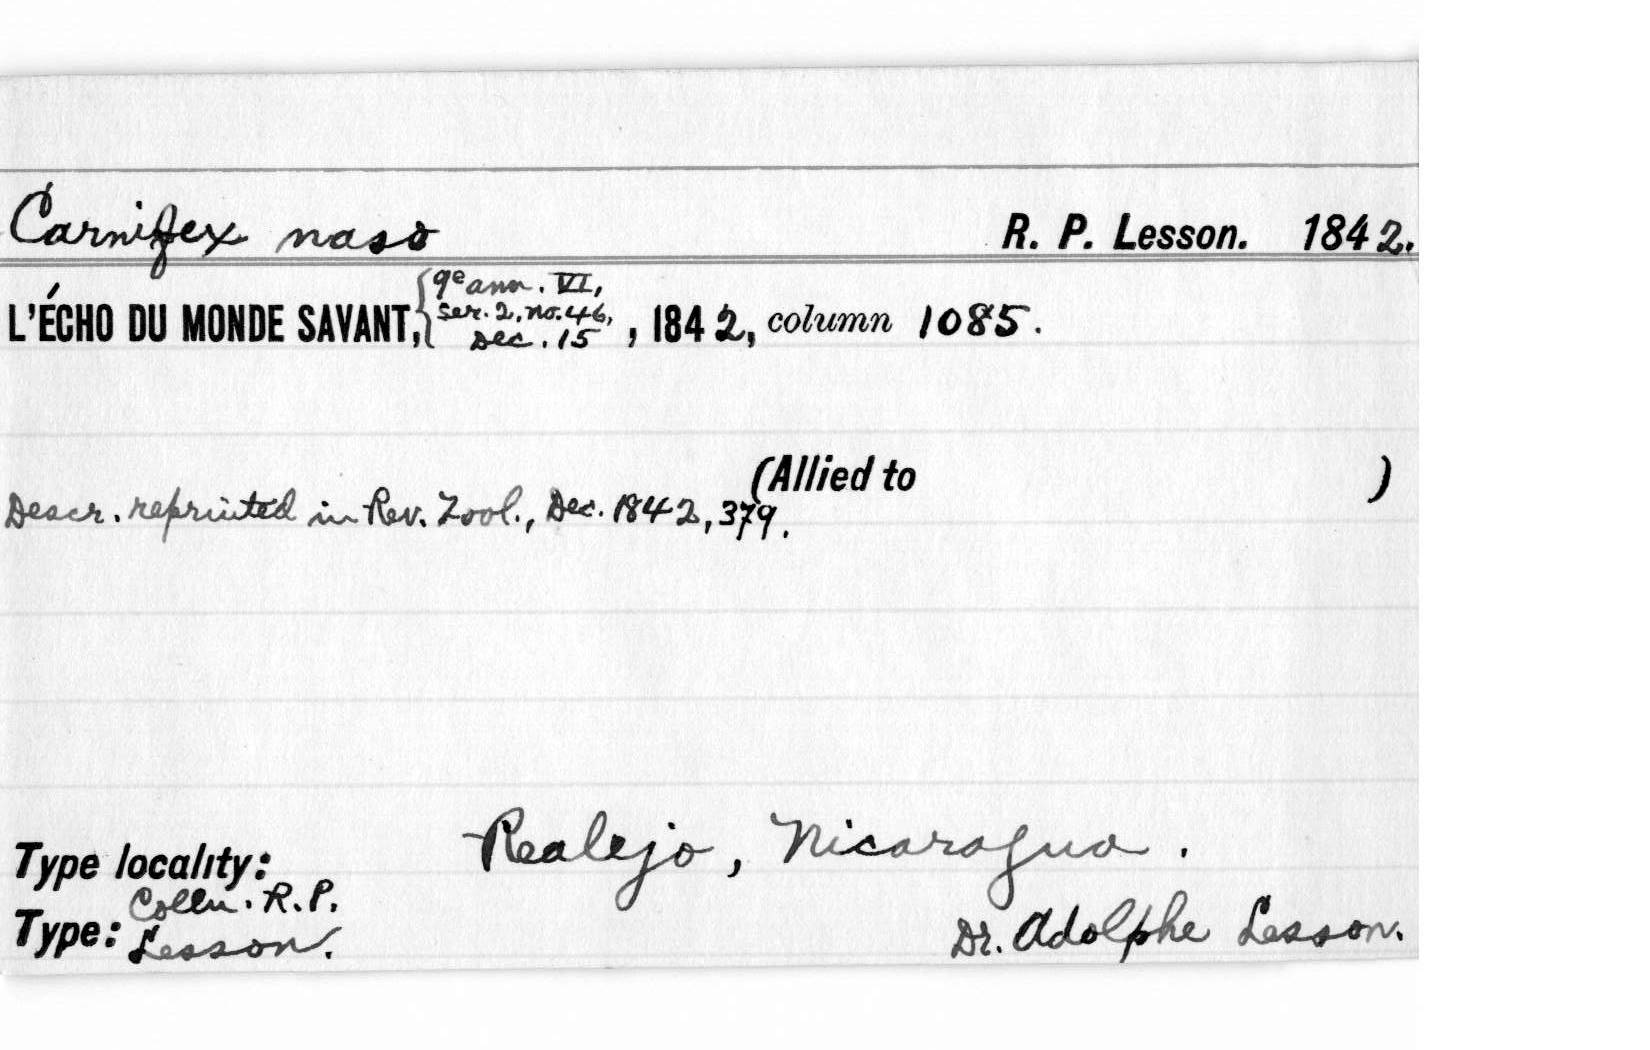 Carnifex naso R. P. Lesson. 1842.
L'ÉCHO DU MONDE SAVANT, { 9e ann. VI,
ser. 2, no. 46,
Dec. 15 , 1842, column 1085.
(Allied to )
Descr. reprinted in Rev. Zool., Dec. 1842, 379.
Type locality: Realejo, Nicaragua.
Type: Colln. R.P.
Lesson. Dr. Adolphe Lesson.